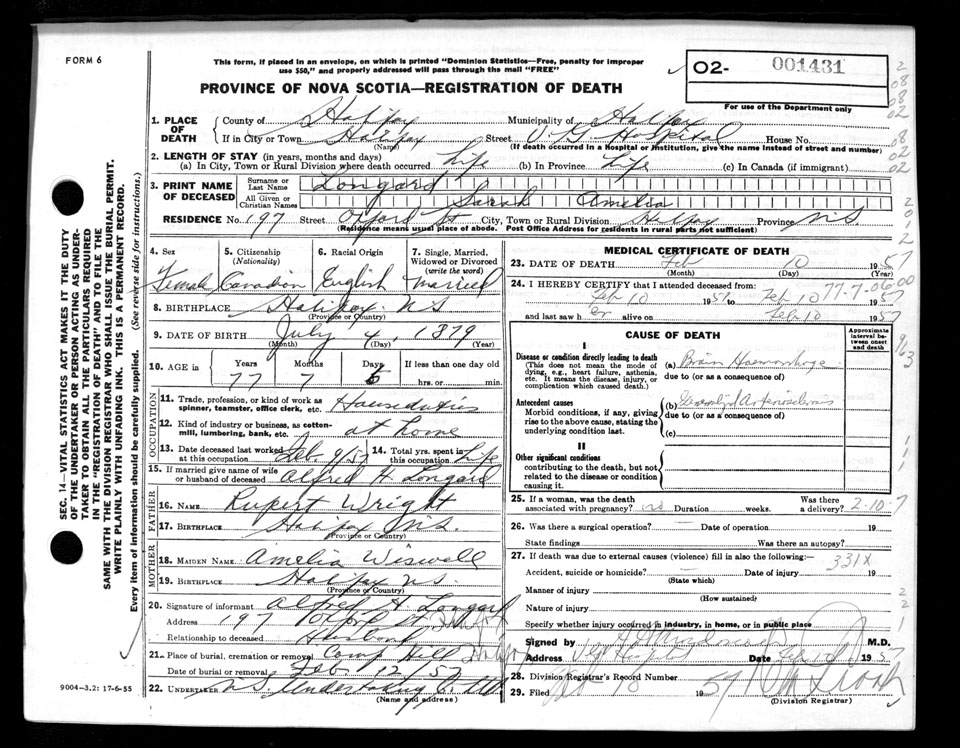 FORM 6
This form, if placed in an envelope, on which is printed "Dominion Statistics—Free, penalty for improper
use $50," and properly addressed will pass through the mail "FREE"
02- 001431
For use of the Department only
PROVINCE OF NOVA SCOTIA—REGISTRATION OF DEATH
1. PLACE OF DEATH
County of Halifax Municipality of Halifax
If in City or Town Halifax Street V.G. Hospital House No.
(Name) (If death occurred in a Hospital or Institution, give the name instead of street and number)
2. LENGTH OF STAY (in years, months and days)
(a) In City, Town or Rural Division where death occurred Life (b) In Province Life (c) In Canada (if immigrant)
3. PRINT NAME OF DECEASED
Surname or Last Name Longard
All Given or Christian Names Sarah Amelia
RESIDENCE No. 197 Street Oxford St City, Town or Rural Division Halifax Province N.S.
(Residence means usual place of abode. Post Office Address for residents in rural parts not sufficient)
4. Sex Female
5. Citizenship (Nationality) Canadian
6. Racial Origin English
7. Single, Married, Widowed or Divorced (write the word) Married
8. BIRTHPLACE Halifax N.S.
(Province or Country)
9. DATE OF BIRTH July 4, 1879
(Month) (Day) (Year)
10. AGE in Years Months Days If less than one day old
77 7 6 hrs. or min.
OCCUPATION
11. Trade, profession, or kind of work as spinner, teamster, office clerk, etc. Houseduties
12. Kind of industry or business, as cotton-mill, lumbering, bank, etc. at home
13. Date deceased last worked at this occupation Feb. 9/57
14. Total yrs. spent in this occupation Life
15. If married give name of wife or husband of deceased Alfred H Longard
FATHER
16. NAME Rupert Wright
17. BIRTHPLACE Halifax N.S.
(Province or Country)
MOTHER
18. MAIDEN NAME Amelia Wiswell
19. BIRTHPLACE Halifax N.S.
(Province or Country)
20. Signature of informant Alfred H Longard
Address 197 Oxford St. Halifax
Relationship to deceased Husband
21. Place of burial, cremation or removal Camp Hill Halifax
Date of burial or removal Feb 12/57
22. UNDERTAKER N.S. Undertaking Co. Ltd
(Name and address)
MEDICAL CERTIFICATE OF DEATH
23. DATE OF DEATH Feb 10 1957
(Month) (Day) (Year)
24. I HEREBY CERTIFY that I attended deceased from:
Feb 10 1957 to Feb 10 1957
77-7-0600
and last saw her alive on Feb 10 1957
CAUSE OF DEATH
Approximate interval between onset and death
I
Disease or condition directly leading to death
(This does not mean the mode of dying, e.g., heart failure, asthenia, etc. It means the disease, injury, or complication which caused death.)
(a) Brain Haemorrhage
due to (or as a consequence of)
Antecedent causes
Morbid conditions, if any, giving rise to the above cause, stating the underlying condition last.
(b) Arteriosclerosis
due to (or as a consequence of)
(c)
II
Other significant conditions
contributing to the death, but not related to the disease or condition causing it.
25. If a woman, was the death associated with pregnancy? no Duration weeks. Was there a delivery?
2-10-7
26. Was there a surgical operation? — Date of operation 19
State findings Was there an autopsy?
27. If death was due to external causes (violence) fill in also the following:—
331X
Accident, suicide or homicide? — Date of injury 19
(State which)
Manner of injury
(How sustained)
Nature of injury
Specify whether injury occurred in industry, in home, or in public place
Signed by M.D.
Address Date 1957
28. Division Registrar's Record Number
29. Filed 1957
(Division Registrar)
SEC. 14—VITAL STATISTICS ACT MAKES IT THE DUTY
OF THE UNDERTAKER OR PERSON ACTING AS UNDER-
TAKER TO OBTAIN ALL THE PARTICULARS REQUIRED
IN THE "REGISTRATION OF DEATH" AND TO FILE THE
SAME WITH THE DIVISION REGISTRAR WHO SHALL ISSUE THE BURIAL PERMIT.
WRITE PLAINLY WITH UNFADING INK. THIS IS A PERMANENT RECORD.
Every item of information should be carefully supplied. (See reverse side for instructions.)
9004—3.2: 17-6-55